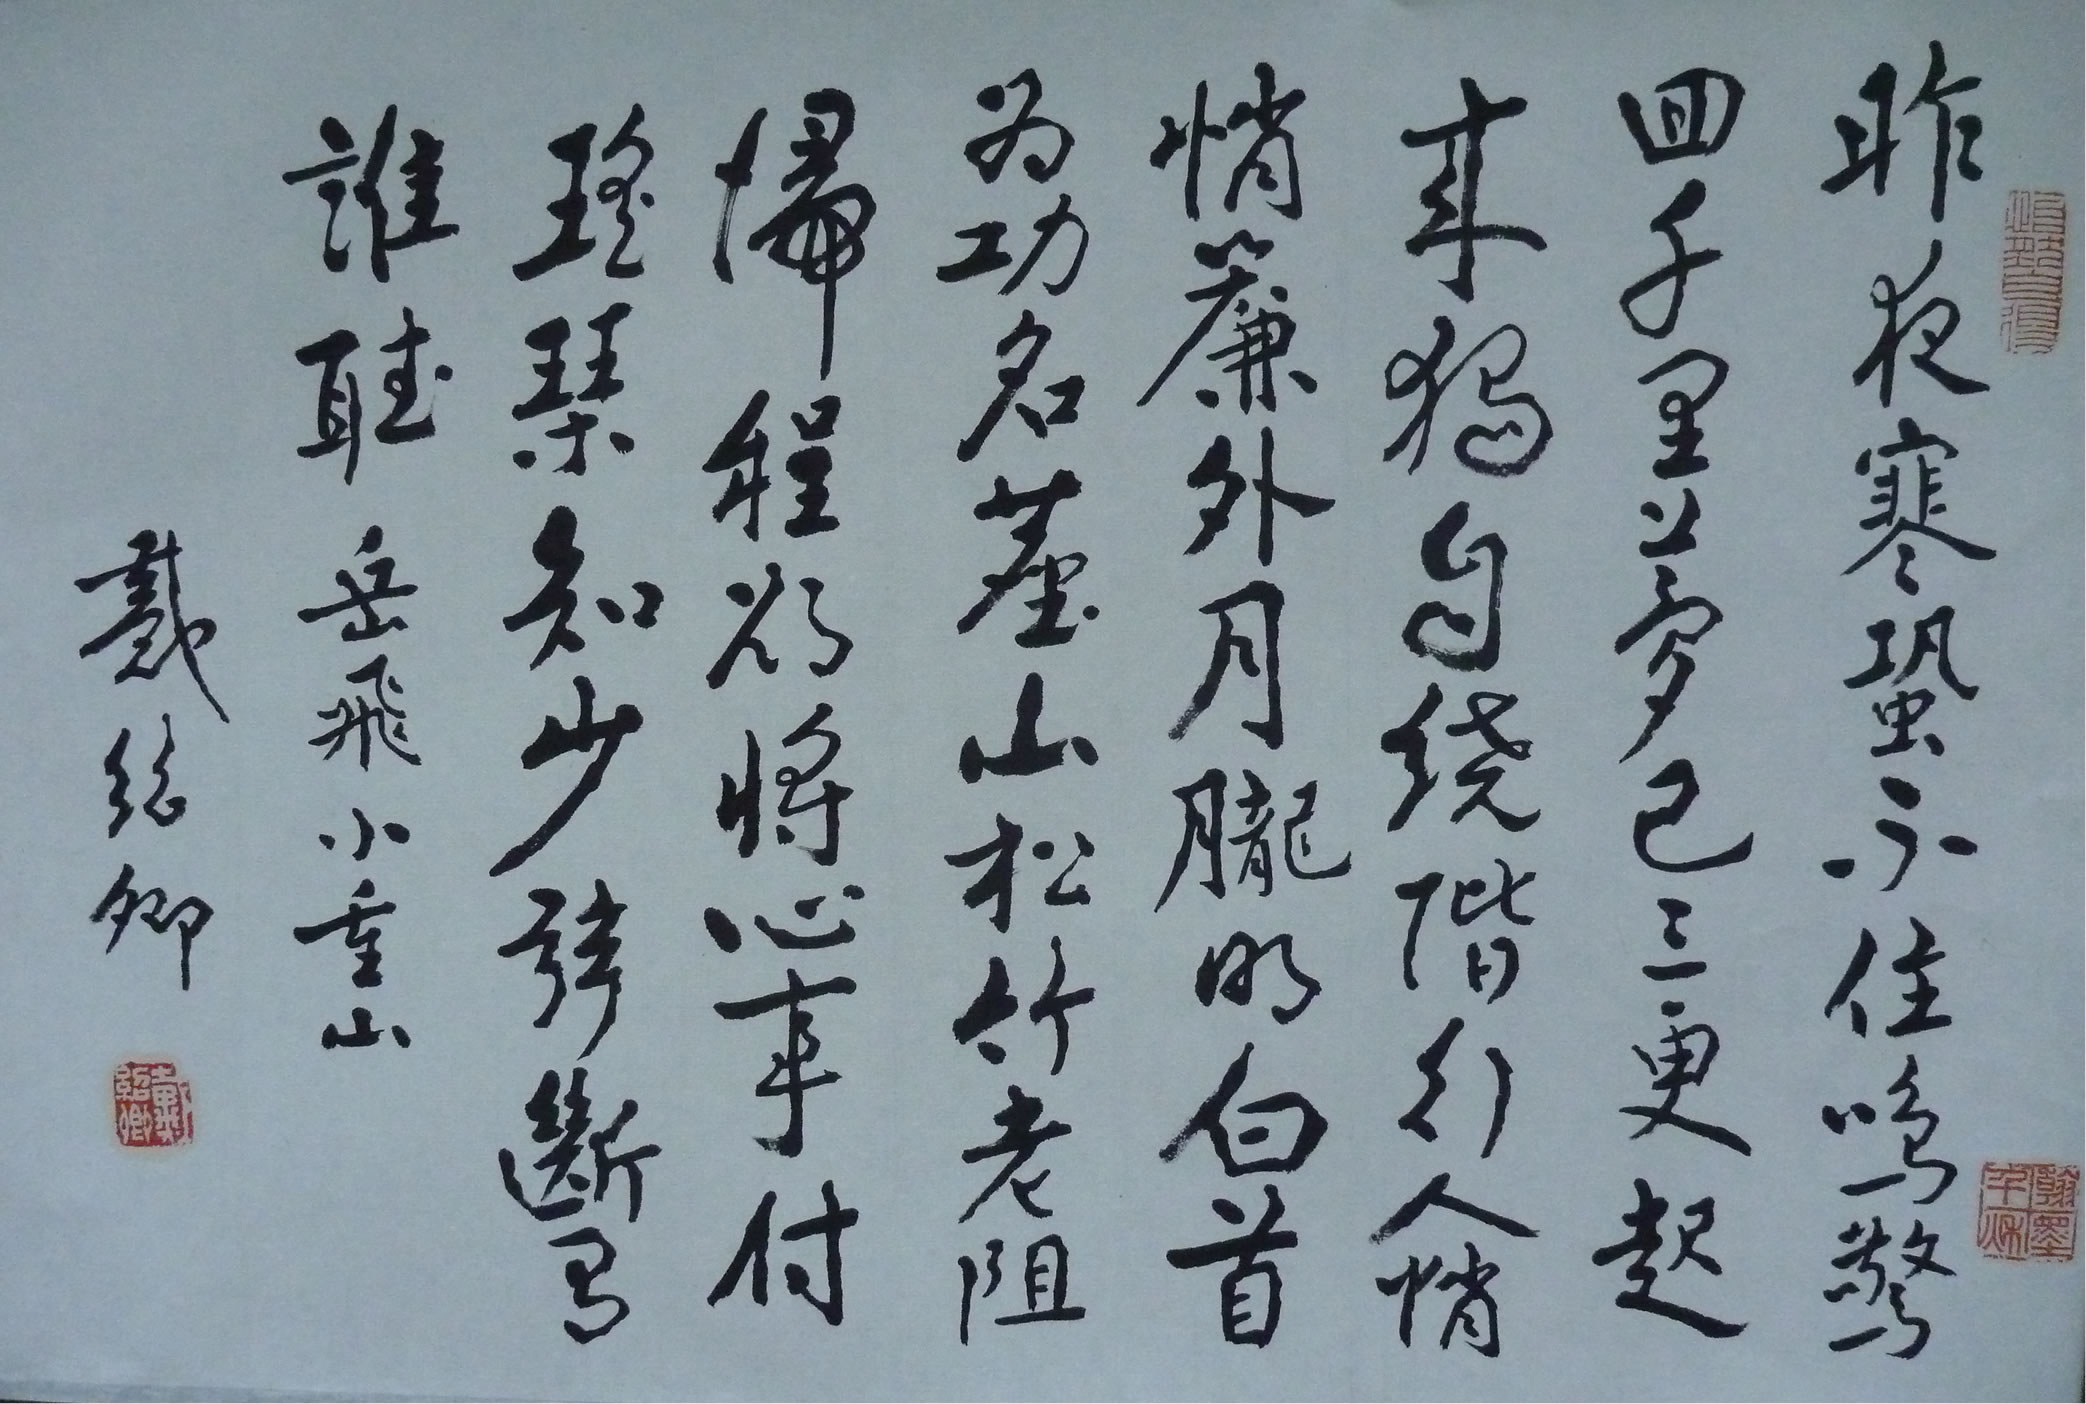 昨夜寒蛩不住鳴驚
回千里夢已三更起
来獨自繞階行人悄
悄簾外月朧明白首
為功名舊山松竹老阻
歸程欲將心事付
瑤琴知少弦斷有
誰聽 岳飛小重山
戴紹卿
戴紹卿
翰墨千秋